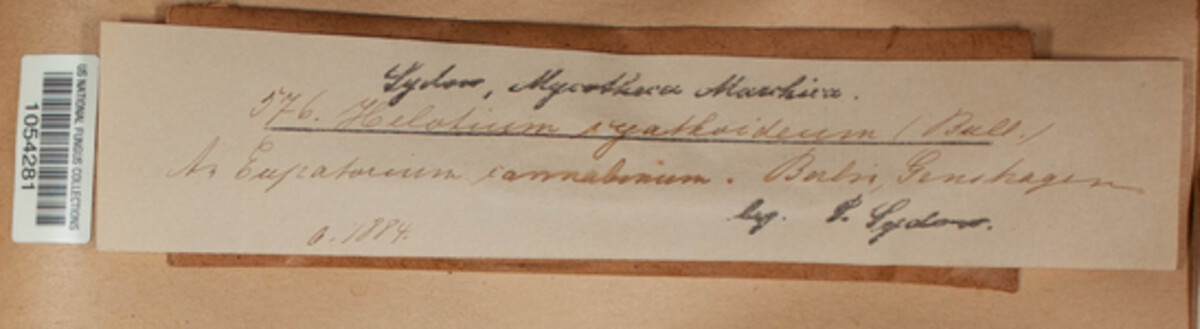 US NATIONAL FUNGUS COLLECTIONS
1054281
Sydow, Mycotheca Marchica.
576. Helotium cyathoideum (Bull.)
An Eupatorium cannabinum. Berlin, Genshagen
6. 1884.
leg. P. Sydow.